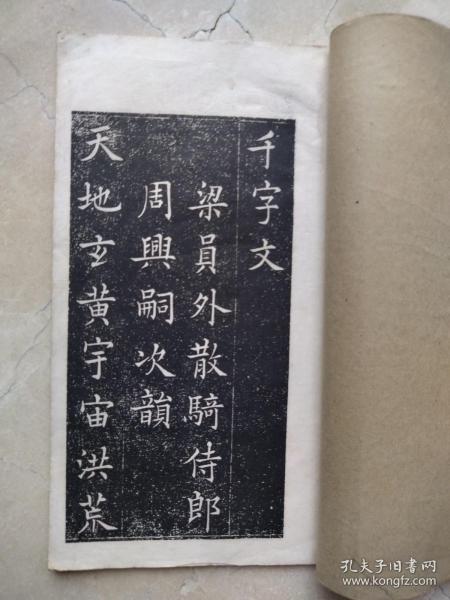 千字文
梁員外散騎侍郎
周興嗣次韻
天地玄黄宇宙洪荒
孔夫子旧书网
www.kongfz.com